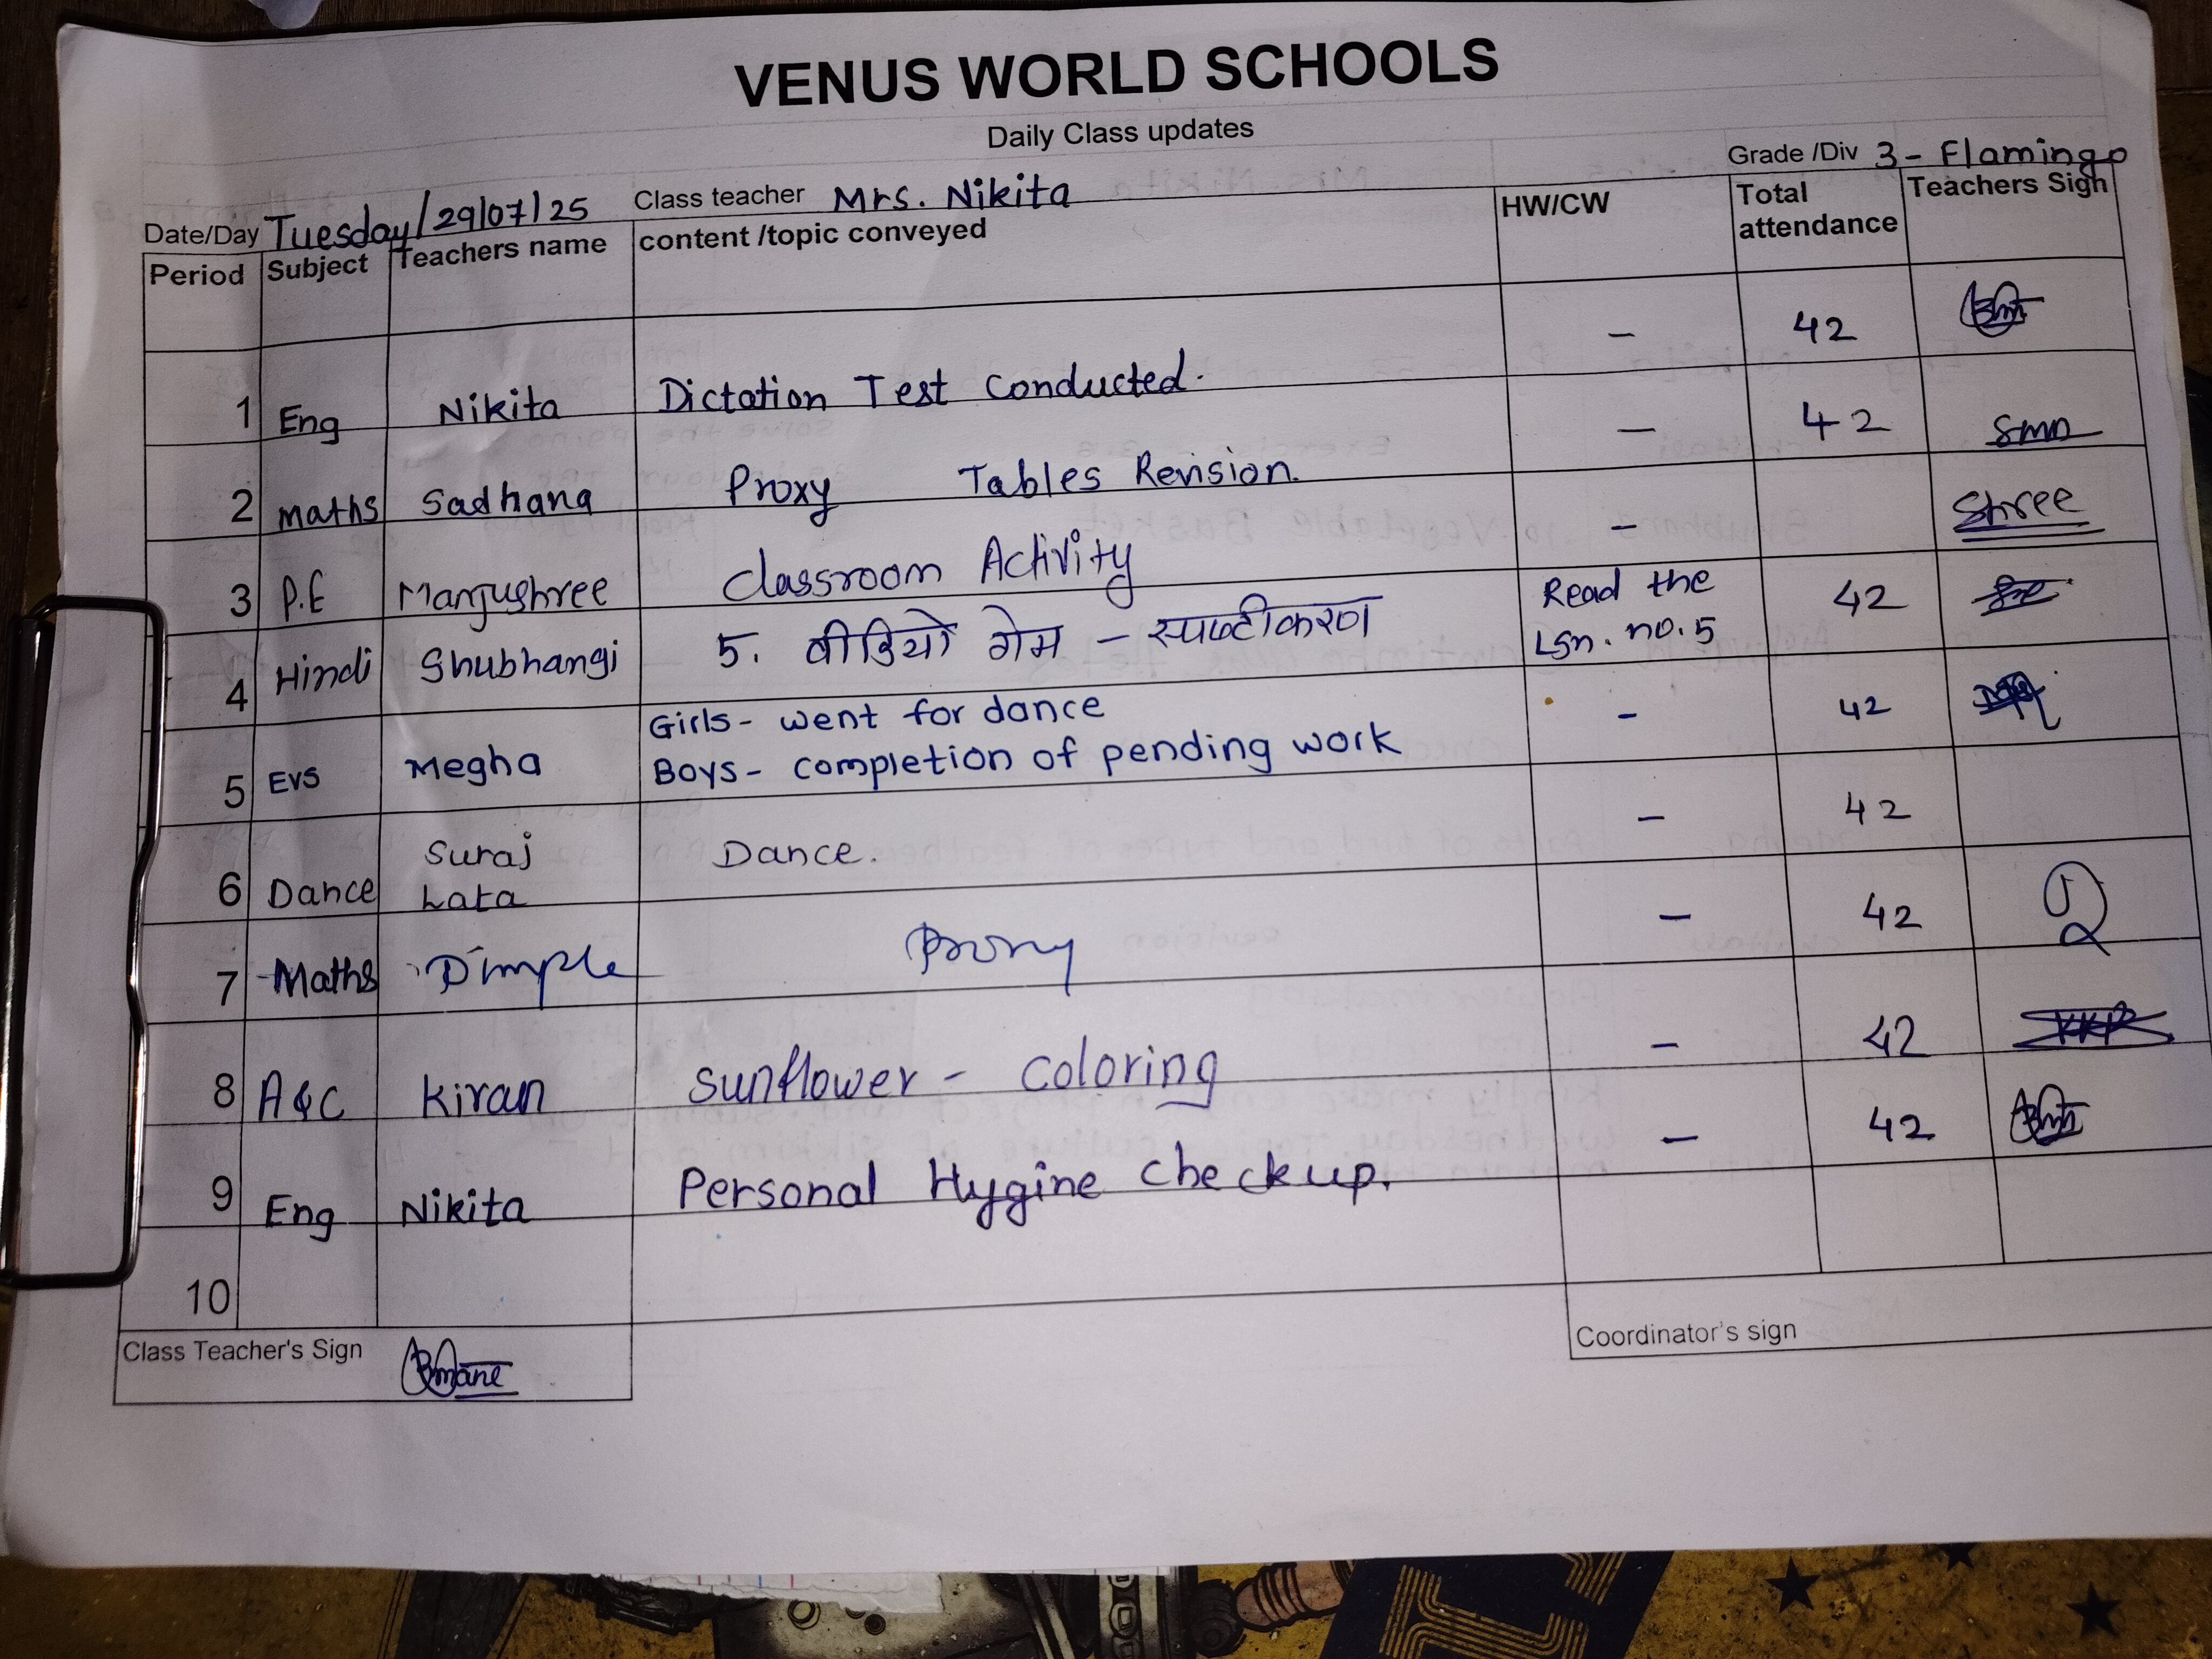 VENUS WORLD SCHOOLS
Daily Class updates
Grade /Div 3 - Flamingo
Date/Day Tuesday/29/07/25 Class teacher Mrs. Nikita
Period Subject Teachers name content /topic conveyed HW/CW Total attendance Teachers Sign
1 Eng Nikita Dictation Test Conducted. - 42
2 maths Sadhana Proxy Tables Revision. - 42
3 P.E Manjushree Classroom Activity - Shree
4 Hindi Shubhangi 5. वीडियो गेम - स्पष्टीकरण Read the Lsn. no.5 42
5 EVS Megha Girls- went for dance - 42
Boys- completion of pending work
6 Dance Suraj Lata Dance. - 42
7 Maths Dimple Proxy - 42
8 A&C Kiran Sunflower - Coloring - 42
9 Eng Nikita Personal Hygine Checkup. - 42
10
Class Teacher's Sign
Coordinator's sign